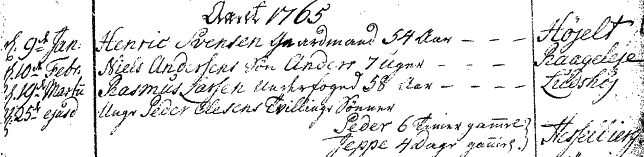 Anno 1765
d. 9de Jan. Henric Svensen Gaardmand 54 Aar - - - Höjelt
d. 10de Febr. Niels Andersens Sön Anders 7 uger - - - Raageleje
d. 19de Martii Rasmus Larsen Underfoged 58 Aar - - - -
d. 25de ejusd Unge Peder Olesens Tvillings Sönner
Peder 6 Timer gammel
Jeppe 4 Dage gammel